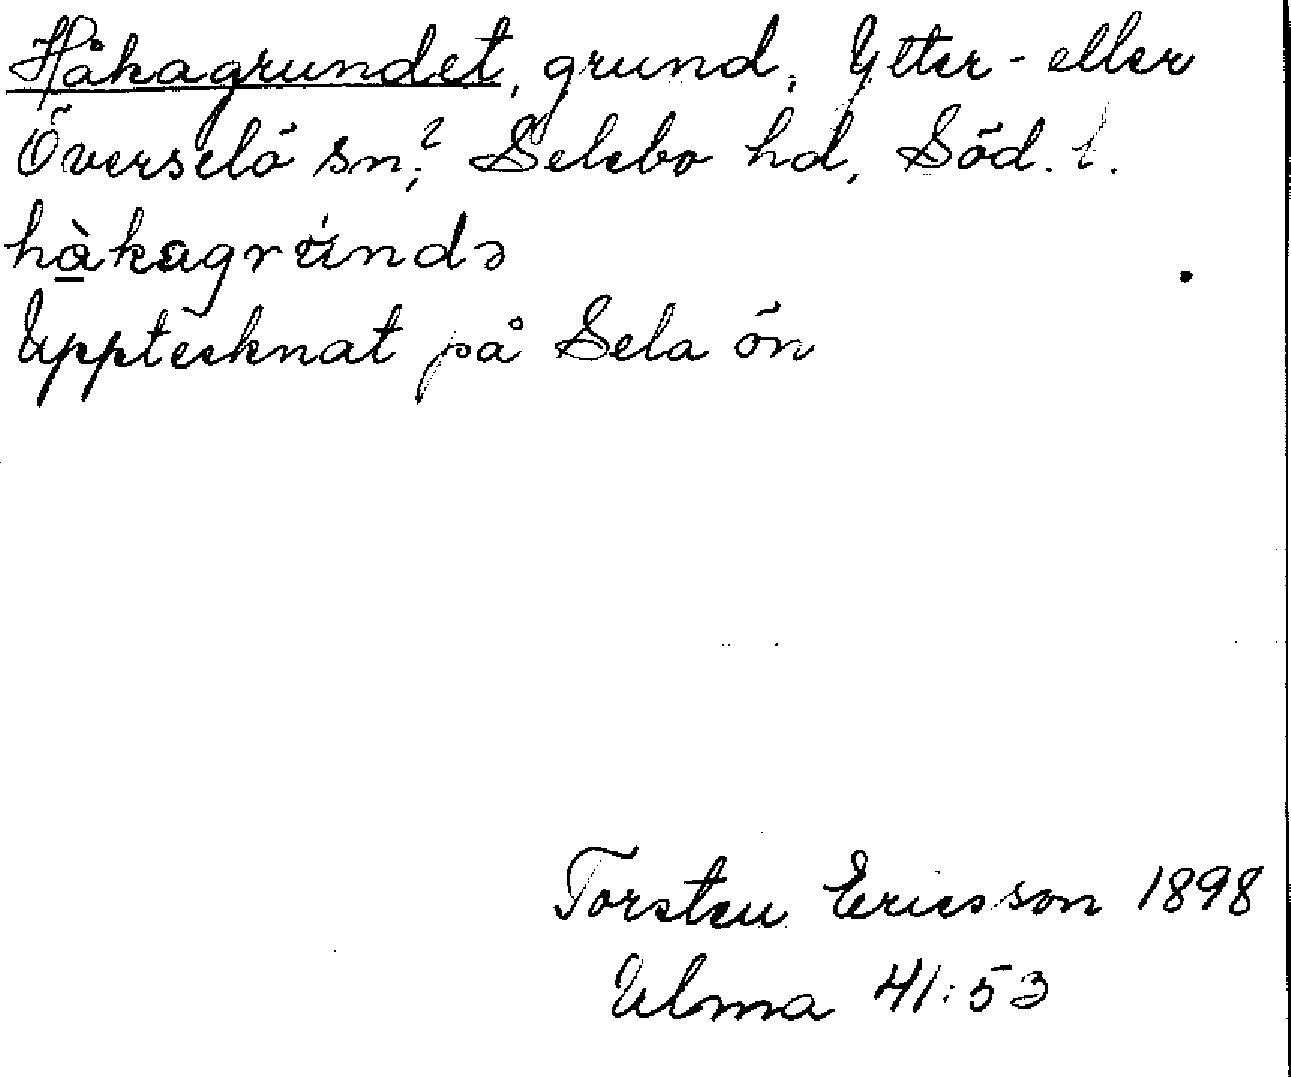 Håkagrundet, grund, Ytter- eller
Överselö sn,? Selebo hd, Söd. l.
hàkagrúndə
Upptecknat på Sela ön
Torsten Ericsson 1898
Ulma 41:53